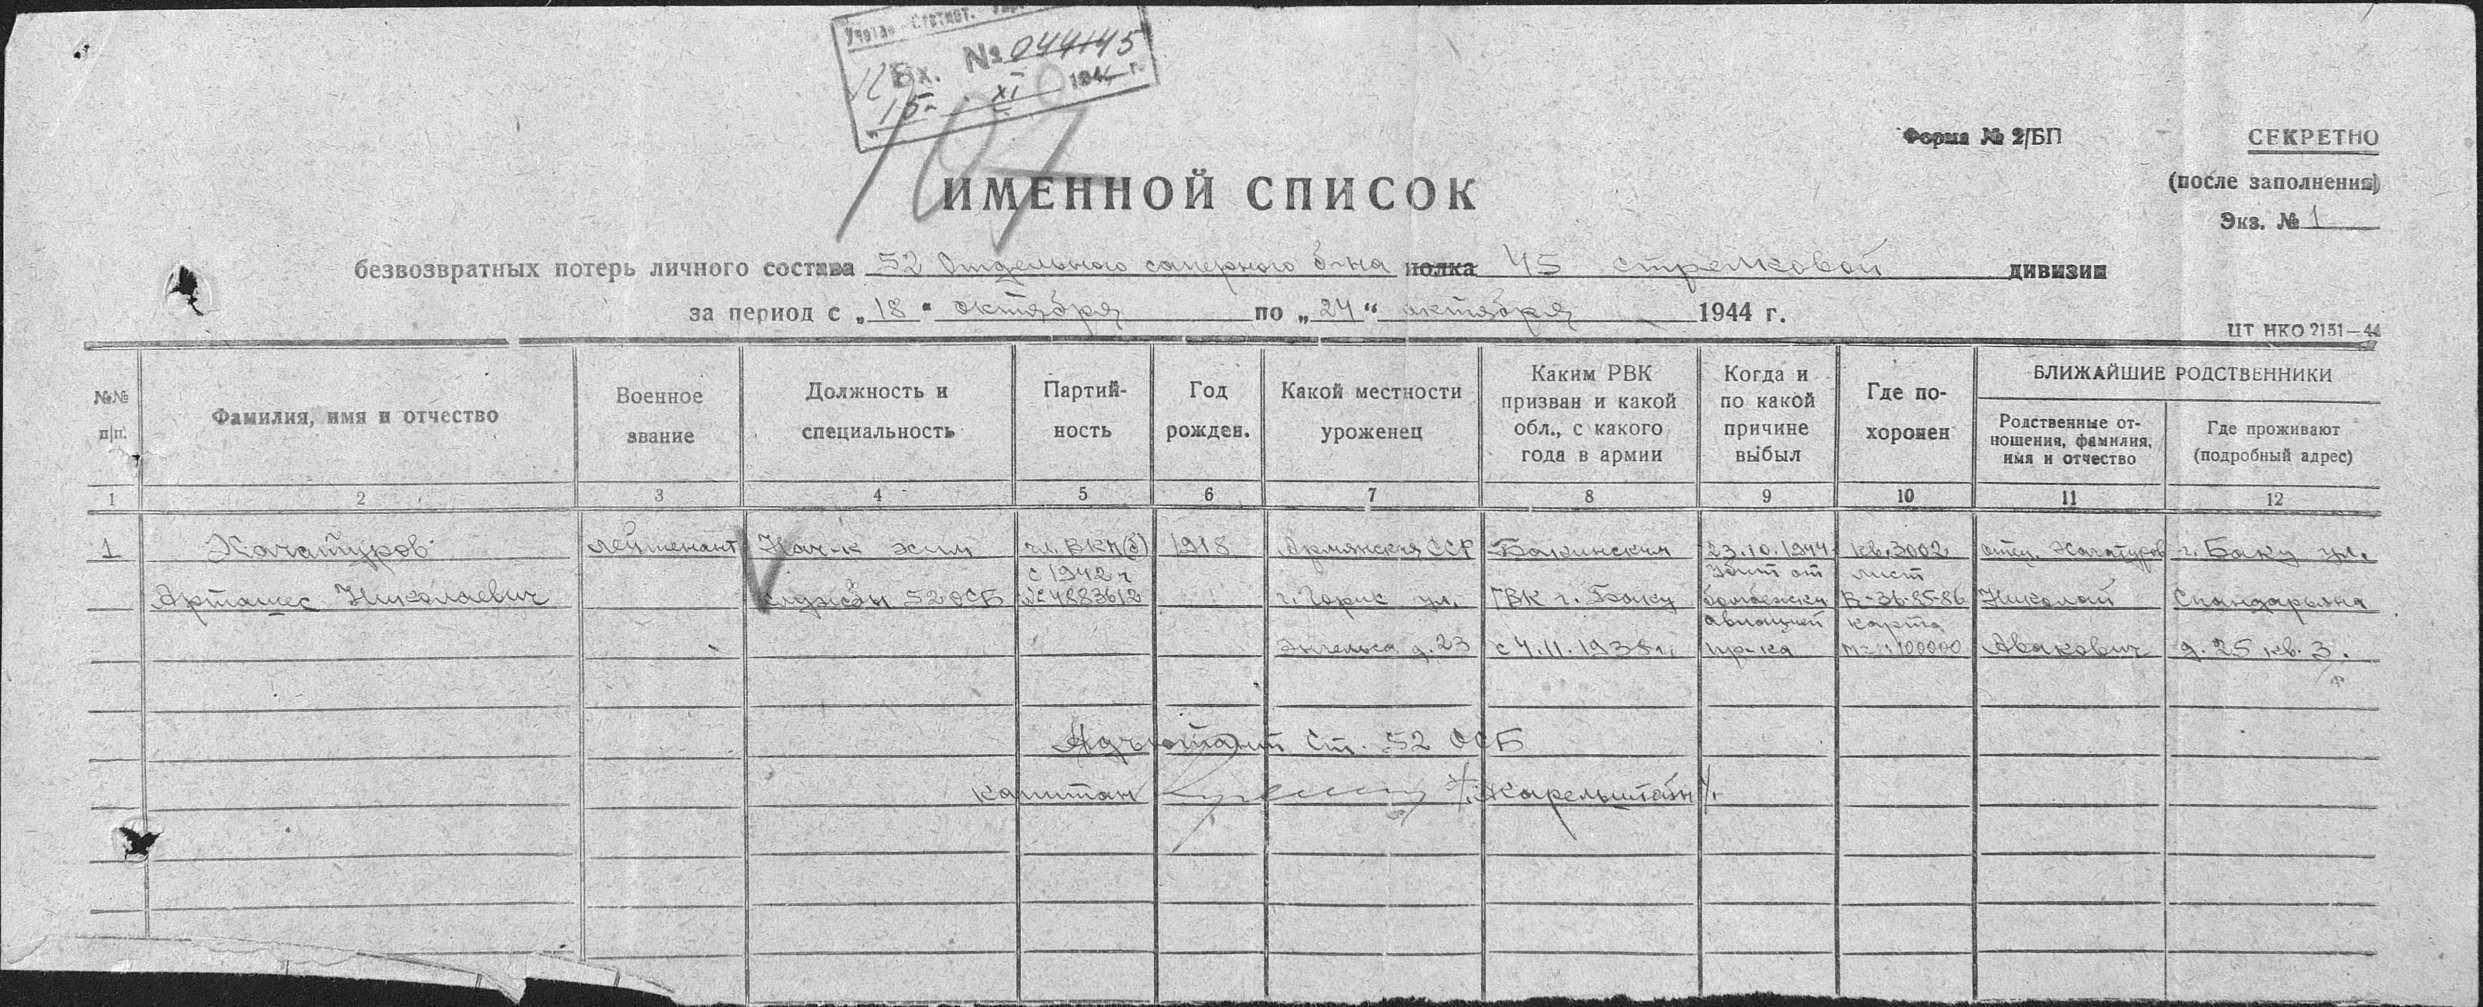 Учетно Статист.
Вх. № 044145
"15" XI 1944 г.
107
Форма № 2/БП
СЕКРЕТНО
(после заполнения)
Экз. № 1
ИМЕННОЙ СПИСОК
безвозвратных потерь личного состава 52 Отдельного саперного б-на полка 45 стрелковой дивизии
за период с „18“ октября по „24“ октября 1944 г.
ЦТ НКО 2151—44
№№ п/п.
Фамилия, имя и отчество
Военное звание
Должность и специальность
Партий-
ность
Год рожден.
Какой местности уроженец
Каким РВК призван и какой обл., с какого года в армии
Когда и по какой причине выбыл
Где по-
хоронен
БЛИЖАЙШИЕ РОДСТВЕННИКИ
Родственные от-
ношения, фамилия,
имя и отчество
Где проживают
(подробный адрес)
1 2 3 4 5 6 7 8 9 10 11 12
1 Хачатуров лейтенант Нач-к хим чл. ВКП(б) 1918 Армянская ССР Бакинским 23.10.1944 кв. 3002 отец Хачатуров г. Баку ул.
с 1942 г убит от лист
Арташес Николаевич службы 52 ОСБ №4883612 г. Горис ул. ГВК г. Баку бомбежки R-36-85-86 Николай Спандарьяна
авиацией карта
Энгельса д. 23 с 4.11.1938 г. пр-ка м= 1:100000 Авакович д. 25 кв. 3.
Адъютант Ст. 52 ОСБ
капитан /Карельштейн/.